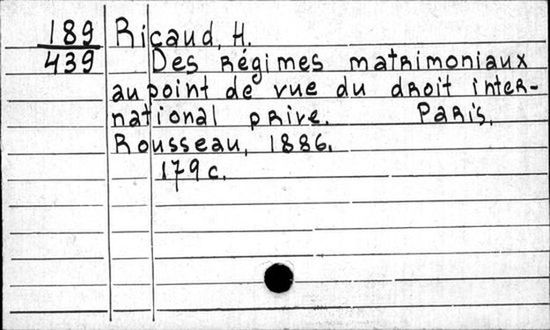 189 Ricaud, H.
439 Des régimes matrimoniaux
au point de vue du droit inter-
national prive. Paris,
Rousseau, 1886.
179 c.